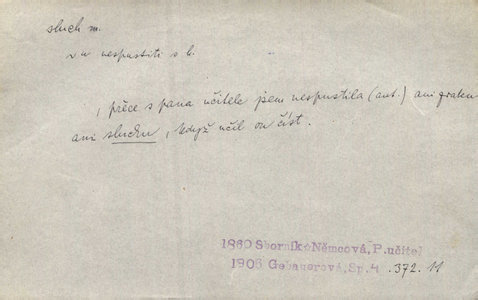 sluch m.
nespustiti s h.
, přece s pana učitele jsem nespustila (aut.) ani zraku
ani sluchu, když učil on číst.
1860 Sborník: Němcová, P. učitel
1906 Gebauerová, Sp. 4 .372. 11